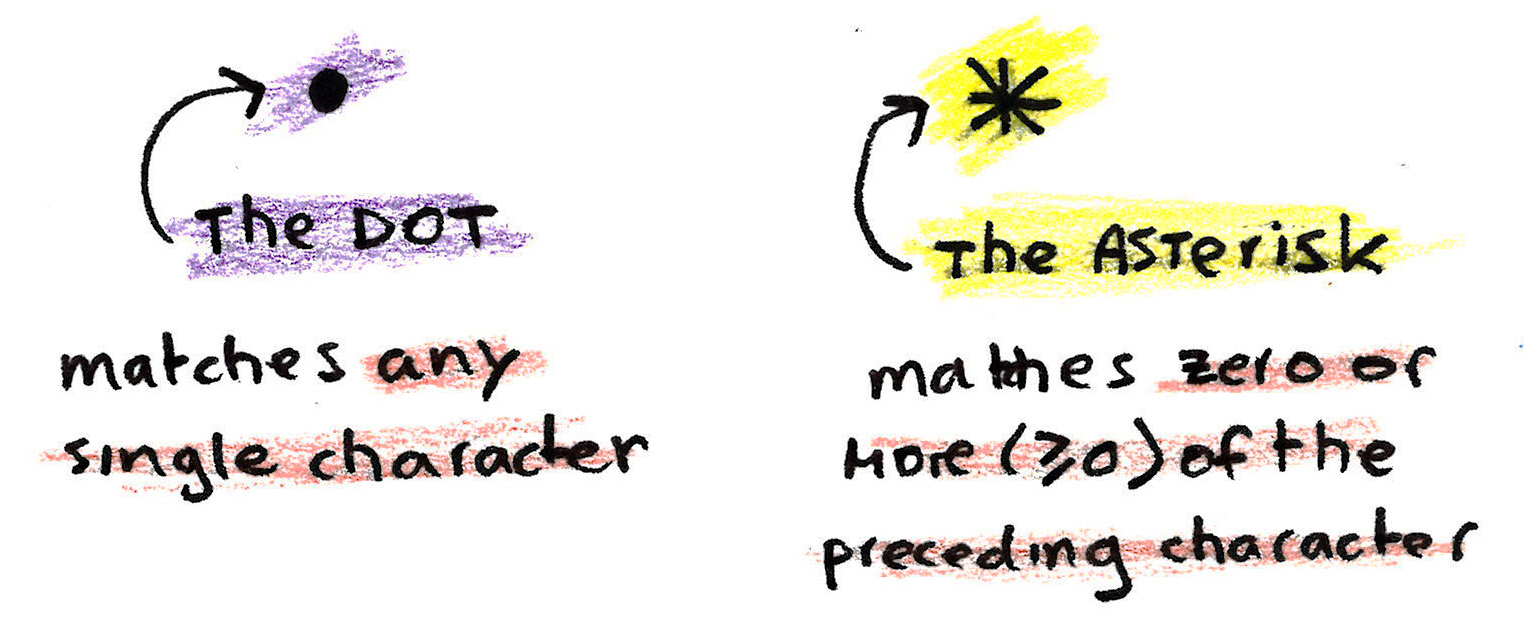 The DOT
matches any
single character
The ASTerisk
matches zero or
More (⩾0) of the
preceding character